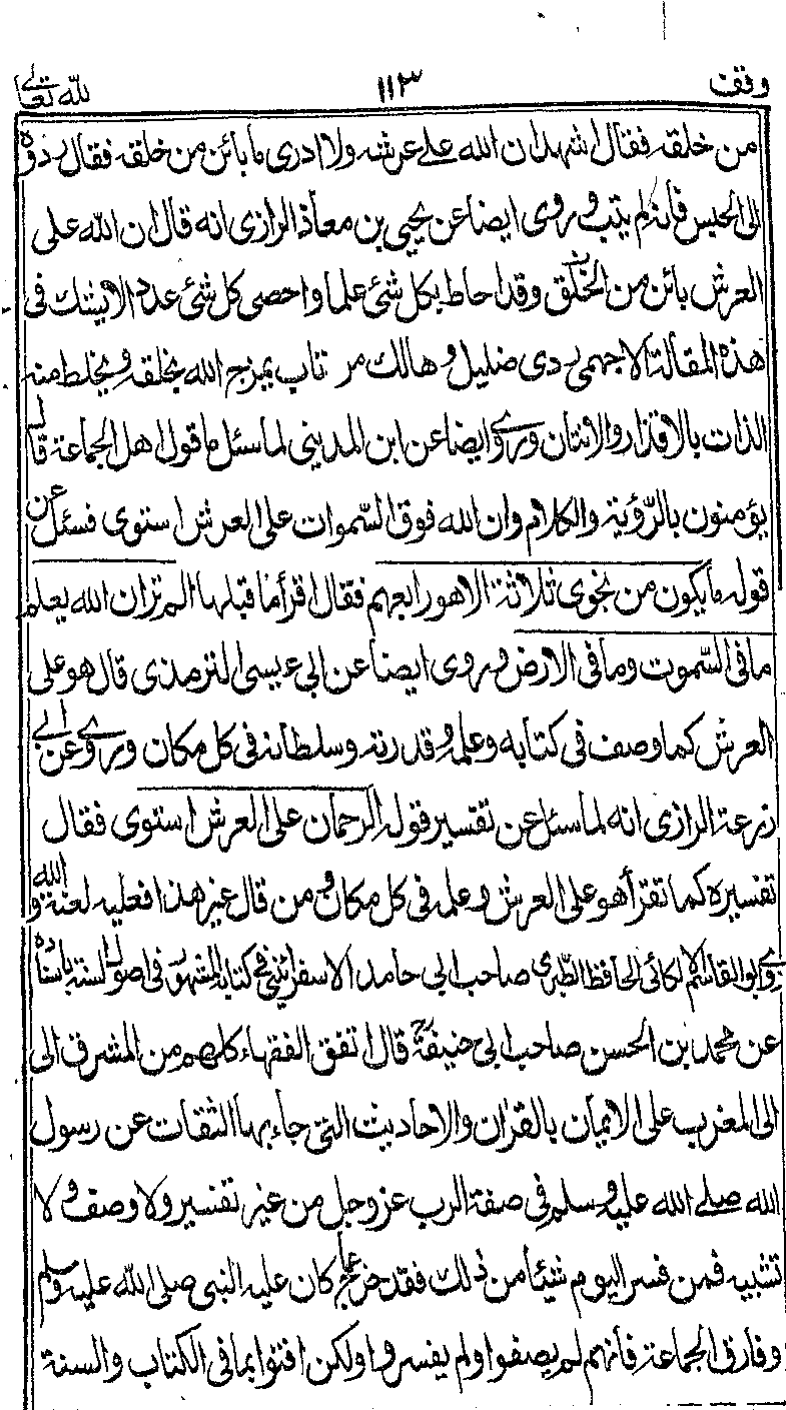 وقف ١١٣ لله تعالى
من خلقه فقال اشهد ان الله على عرشه ولا ادرى ما بائن من خلقه فقال ردوه
الى الحبس فانه لم يتب وروى ايضا عن يحيى بن معاذ الرازى انه قال ان الله على
العرش بائن من الخلق وقد احاط بكل شئ علما واحصى كل شئ عددا لا يشك فى
هذه المقالة الا جهمى ردى ضليل وهالك مرتاب يمزج الله بخلقه ويخلط منه
الذات بالاقذار والانتان وروى ايضا عن ابن المدينى لما سئل ما قول اهل الجماعة قال
يؤمنون بالرّؤية والكلام وان الله فوق السّموات على العرش استوى فسئل عن
قوله ما يكون من نجوى ثلاثة الا هو رابعهم فقال اقرأ ما قبلها الم تران الله يعلم
ما فى السّموت وما فى الارض وروى ايضا عن ابى عيسى الترمذى قال هو على
العرش كما وصف فى كتابه وعلمه وقدرته وسلطانه فى كل مكان وروى عن ابى
زرعة الرازى انه لما سئل عن تفسير قوله الرحمان على العرش استوى فقال
تفسيره كما تقرأ هو على العرش وعلمه فى كل مكان ومن قال غير هذا فعليه لعنة الله و
روى ابو القاسم الالكائى الحافظ الطّبرى صاحب ابى حامد الاسفرائنى فى كتابه المشهور فى اصول السنة باسناده
عن محمد بن الحسن صاحب ابى حنيفة رح قال اتفق الفقهاء كلهم من المشرق الى
الى المغرب على الايمان بالقران والاحاديث التى جاء بها الثقات عن رسول
الله صلى الله عليه وسلم فى صفة الرب عز وجل من غير تفسير ولا وصف ولا
تشبيه فمن فسر اليوم شيئا من ذلك فقد خرج عما كان عليه النبى صلى الله عليه وسلم
وفارق الجماعة فانهم لم يصفوا ولم يفسروا ولكن افتوا بما فى الكتاب والسنة